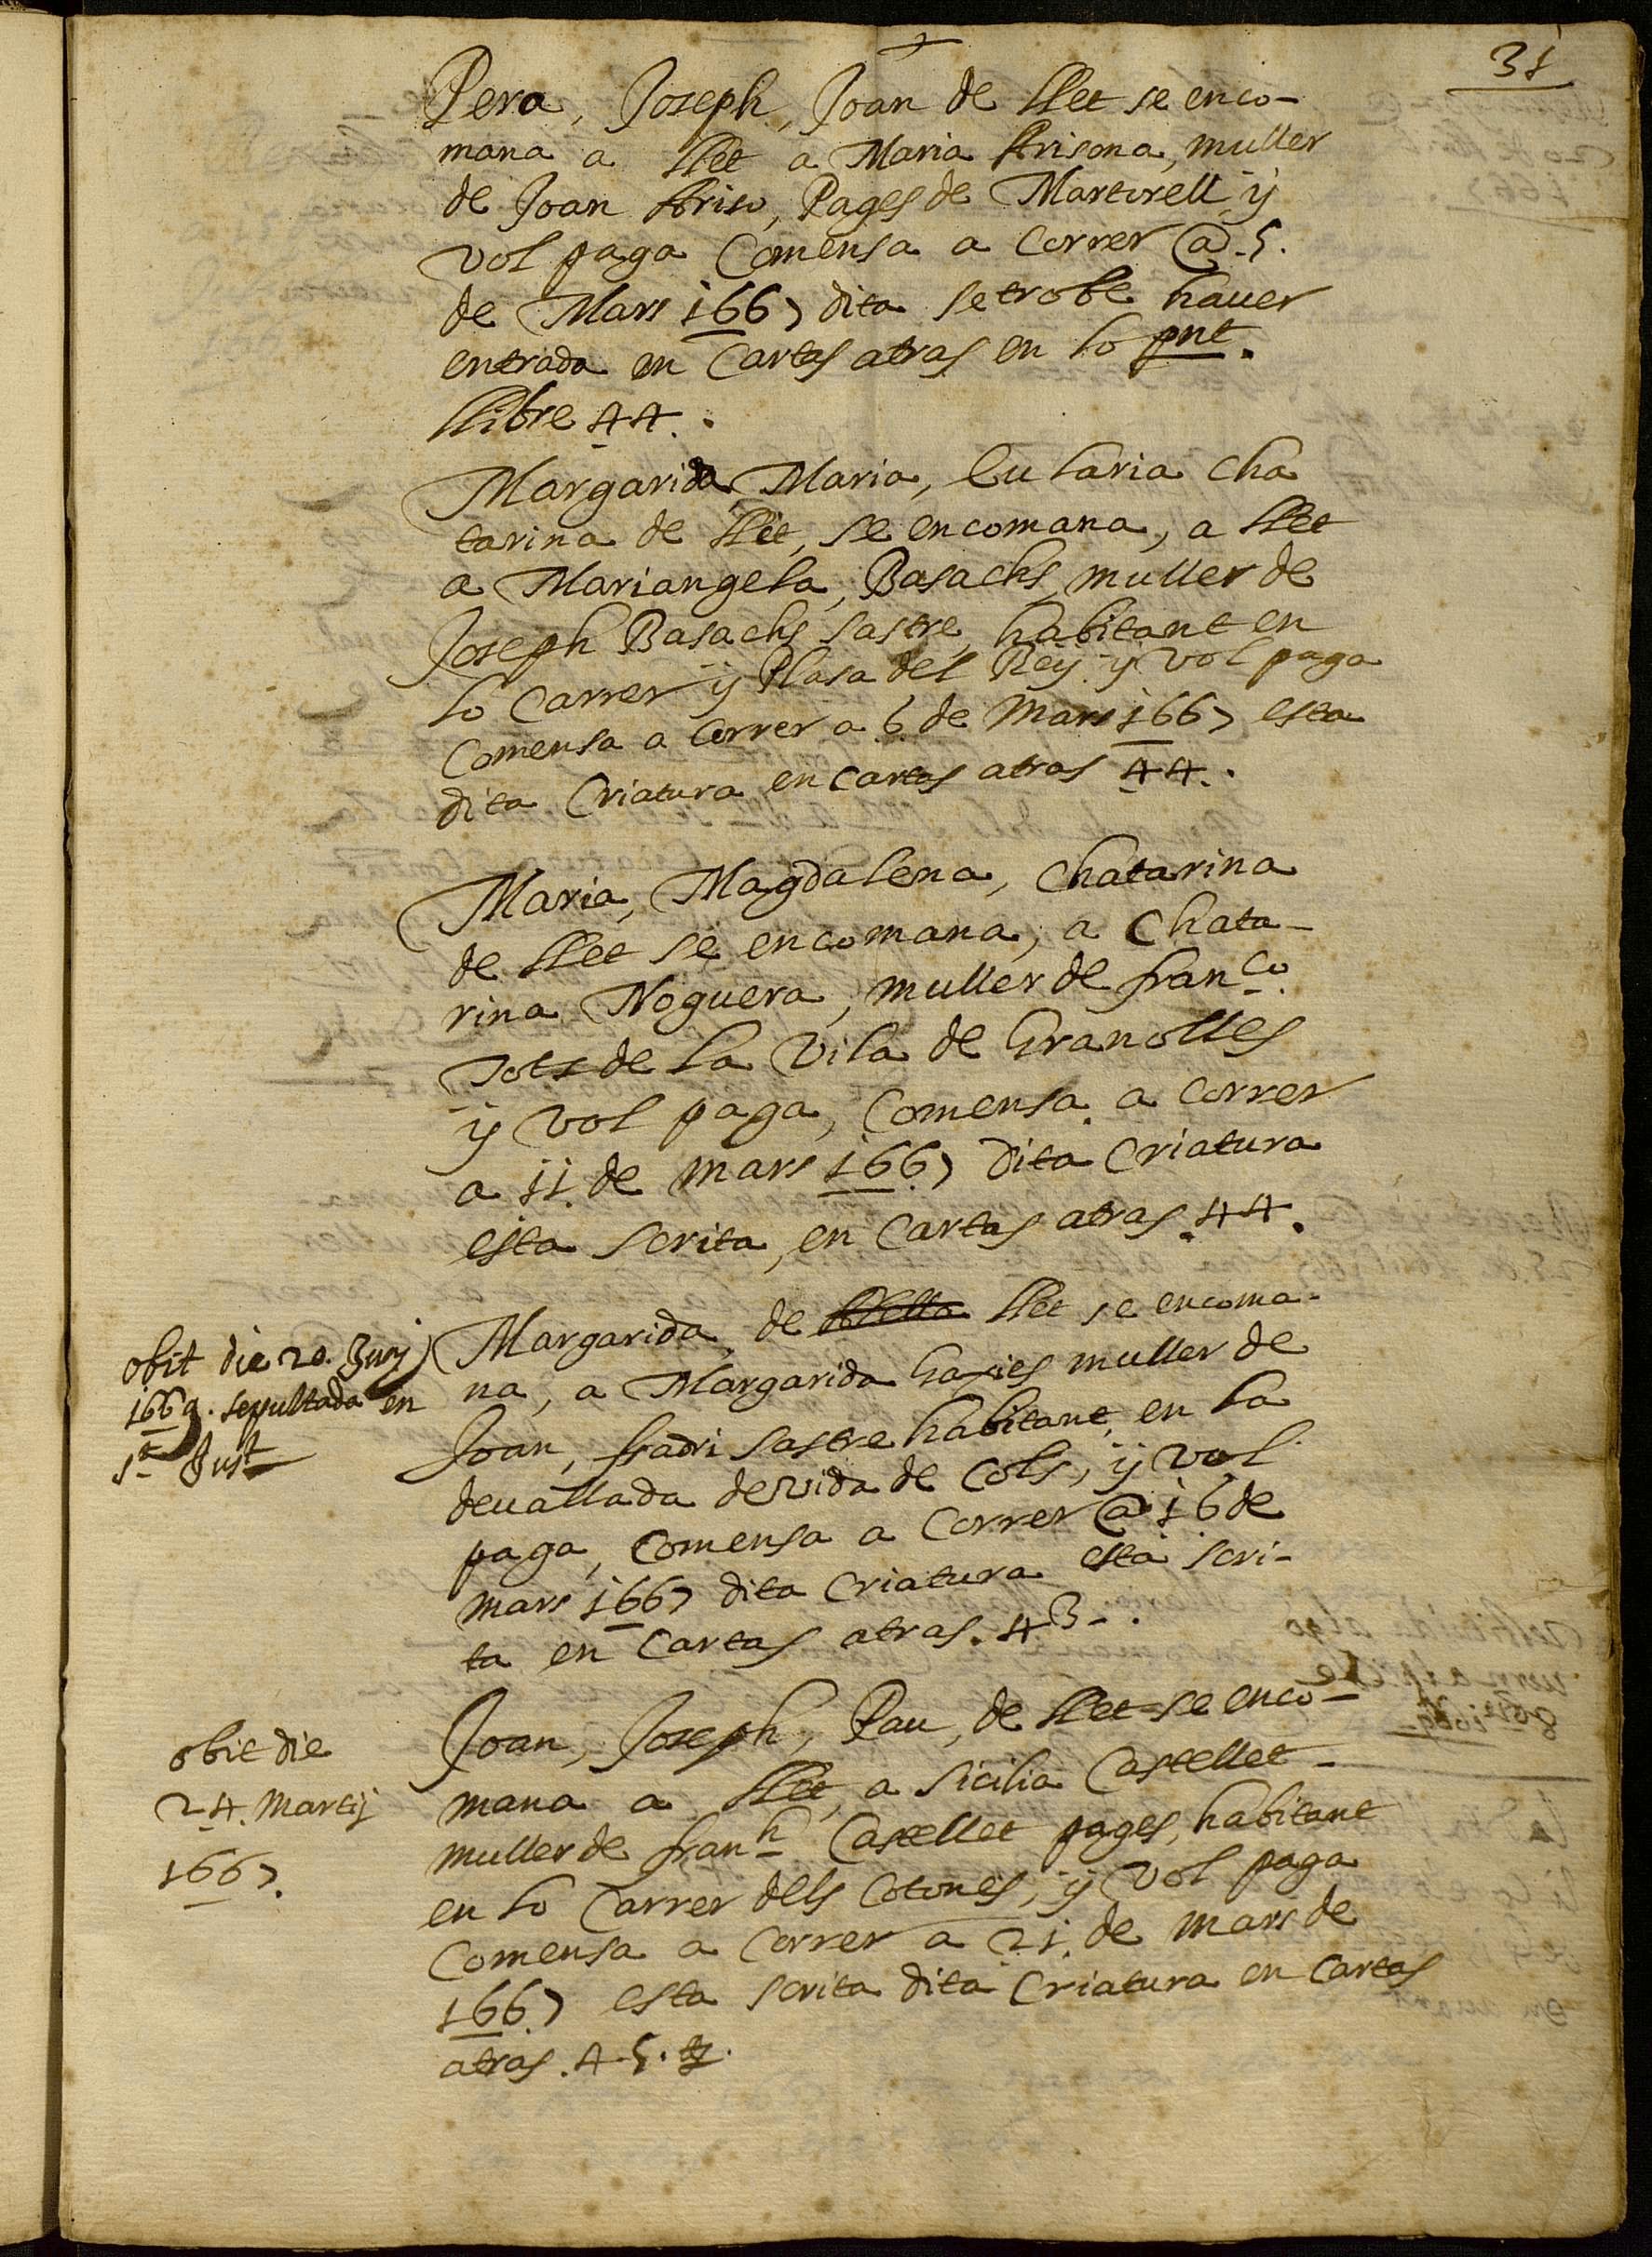 31
Pera, Joseph, Joan de llet se enco-
mana a llet a Maria Arisona, muller
de Joan Ariso, Pages de Martorell, ÿ
vol paga Comensa a Correr @ 5.
de Mars 1667 dita se trobe hauer
entrada en Cartas atras en lo pnt.
llibre 44.
Margarida, Maria, Eularia Cha
tarina de llet, se encomana, a llet
a Mariangela, Basachs, muller de
Joseph Basachs sastre, habitant en
lo Carrer ÿ Plasa del Reÿ ÿ vol paga
Comensa a Correr a 6 de Mars 1667 esta
dita Criatura en Cartas atras 44.
Maria, Magdalena, Chatarina
de llet se encomana, a Chata-
rina Noguera, muller de franco.
de la Vila de Granolles
ÿ vol paga, Comensa a Correr
a 11. de mars 1667 dita Criatura
esta scrita, en Cartas atras. 44.
Margarida, de llet se encoma-
na, a Margarida muller de
Joan, fadri sastre habitant, en la
deuallada de vida de Cols, ÿ vol
paga, Comensa a Correr @ 16 de
mars 1667 dita Criatura esta scri-
ta en Cartas atras. 43-.
obit die 20. Junÿ
1669. sepultada en
St Just
Joan, Joseph, Pau, de llet se enco-
mana a llet, a Sicilia Castellet
muller de franh Castellet pages, habitant
en lo Carrer dels Cotoners, ÿ vol paga
Comensa a Correr a 21. de mars de
1667 esta scrita dita Criatura en Cartas
atras. 45.
obit die
24. Martij
1667.